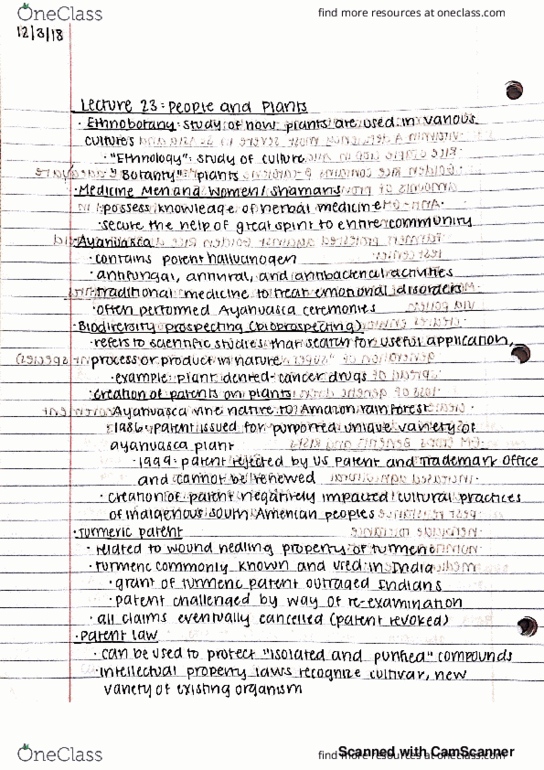 OneClass
find more resources at oneclass.com
12/3/18
Lecture 23: People and Plants
· Ethnobotany: study of how plants are used in various
cultures
· "Ethnology": study of culture
"Botany": plants
· Medicine Men and Women/Shamans
· possess knowledge of herbal medicine
· secure the help of great spirit to entire community
· Ayahuasca
· contains potent hallucinogen
· antifungal, antiviral, and antibacterial activities
· traditional medicine to treat emotional disorders
· often performed Ayahuasca ceremonies
· Biodiversity prospecting (bioprospecting)
· refers to scientific studies that search for useful application,
process or product in nature
· example: plant derived-cancer drugs
· creation of patents on plants
· Ayahuasca vine native to Amazon rainforest
· 1986: patent issued for purported unique variety of
ayahuasca plant
· 1999: patent rejected by US Patent and Trademark Office
and cannot be renewed
· creation of patent negatively impacted cultural practices
of indigenous South American peoples
· Turmeric patent
· related to wound healing property of turmeric
· turmeric commonly known and used in India
· grant of turmeric patent outraged Indians
· patent challenged by way of re-examination
· all claims eventually cancelled (patent revoked)
· Patent law
· can be used to protect "isolated and purified" compounds
· intellectual property laws recognize cultivar, new
variety of existing organism
OneClass
find more resources at oneclass.com
Scanned with CamScanner